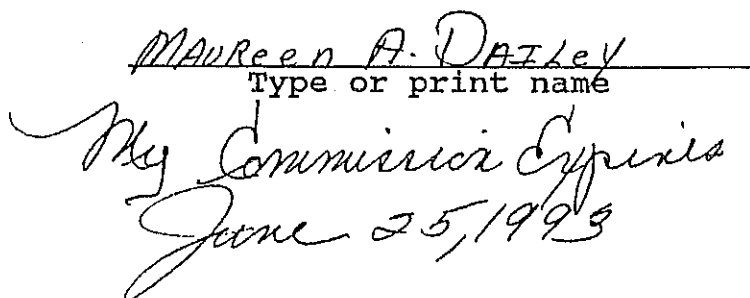 MAUReen A. DAILey
Type or print name
My Commission Expires
June 25, 1993